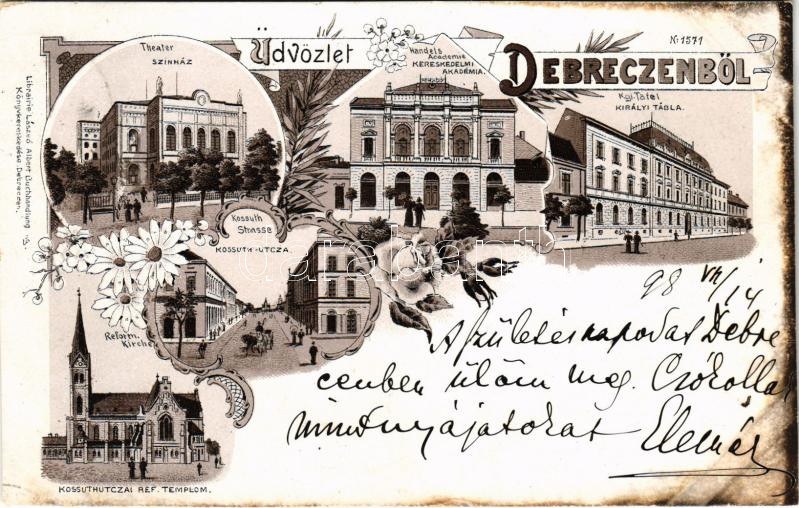 Theater
SZINHÁZ
Üdvözlet
DEBRECZENBŐL
N: 1571
Handels
Academie
KERESKEDELMI
AKADÉMIA.
Kgl. Tafel
KIRÁLYI TÁBLA.
Librairie László Albert Buchhandlung
Könyvkereskedése Debreczen.
Kossuth
Strasse
KOSSUTH-UTCZA.
Reform.
Kirche
KOSSUTHUTCZAI REF. TEMPLOM.
98 VII/14
A születésnapodat Debre
cenben ülöm meg. Csókollak
mindnyájatokat Elemér
darabanth